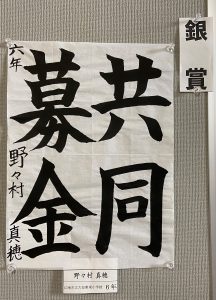 銀賞
共同
募金
六年 野々村 真穂
野々村 真穂
6年